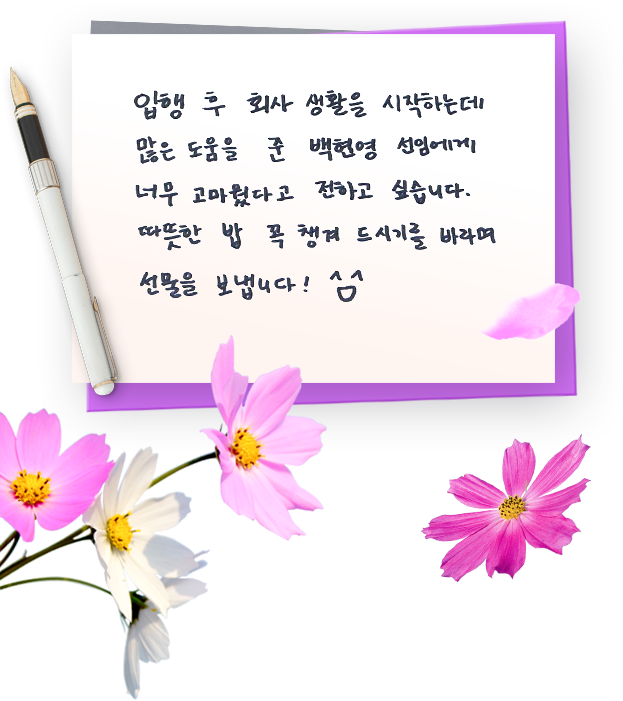 입행 후 회사 생활을 시작하는데
많은 도움을 준 백현영 선임에게
너무 고마웠다고 전하고 싶습니다.
따뜻한 밥 꼭 챙겨 드시기를 바라며
선물을 보냅니다! ^ㅁ^